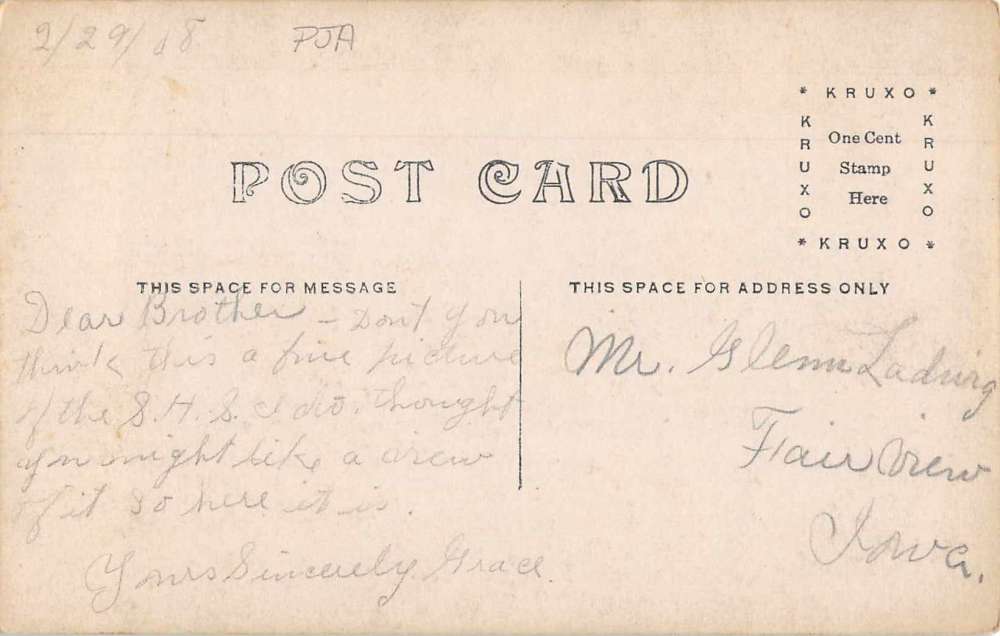 2/29/08 PJA
* KRUXO *
KRUXO
KRUXO
One Cent
Stamp
Here
* KRUXO *
POST CARD
THIS SPACE FOR MESSAGE
THIS SPACE FOR ADDRESS ONLY
Dear Brother – Don't you
think this a fine picture
of the S.H.S. I do. thought
you might like a view
of it so here it is.
Yours Sincerely Grace.
Mr. Glenn Ladwig
Fair View
Iowa.